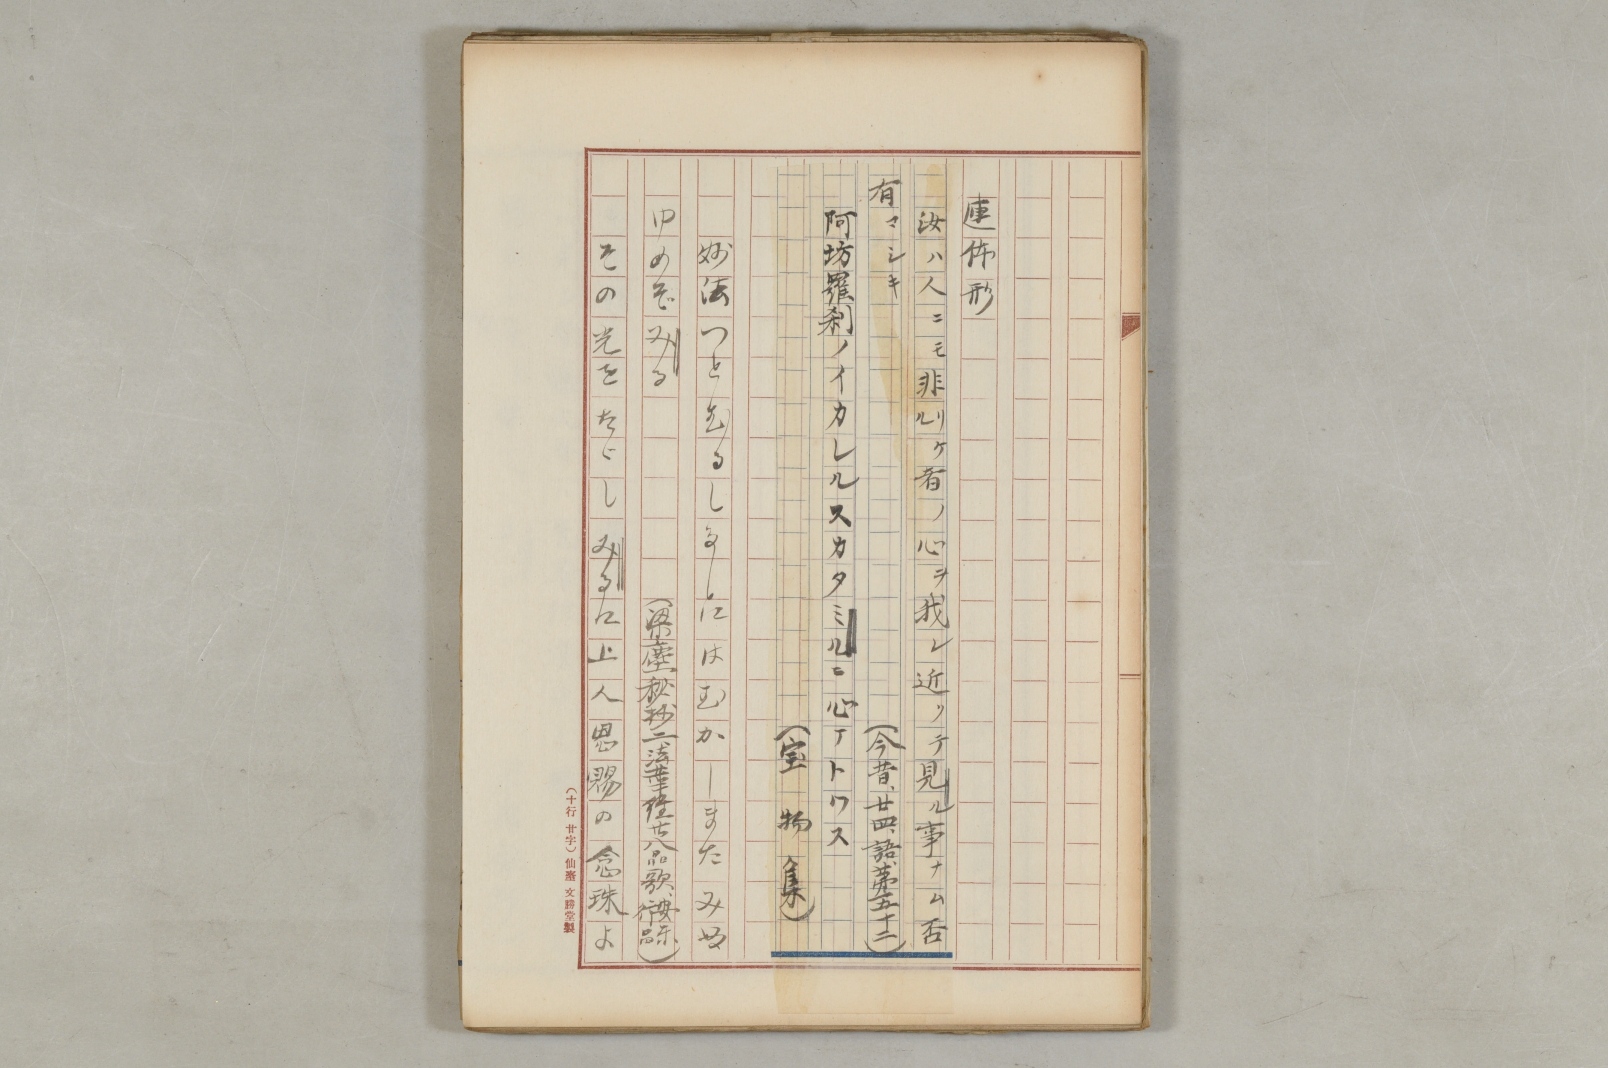 連体形
汝ハ人ニモ非ルリケ者ノ心ヲ我レ近リテ見ル事ナム否
有マシキ
(今昔、廿四、語第五十二)
阿坊羅刹ノイカレルスカタミルニ心アトワス
(宝物集)
妙法つとむるしるしにはむかしまたみぬ
ゆめぞみる
(梁塵秘抄二、法華経廿八品歌、安楽行品)
その光をたよしみるに上人恩賜の念珠よ
(十行廿字)仙台文勝堂製